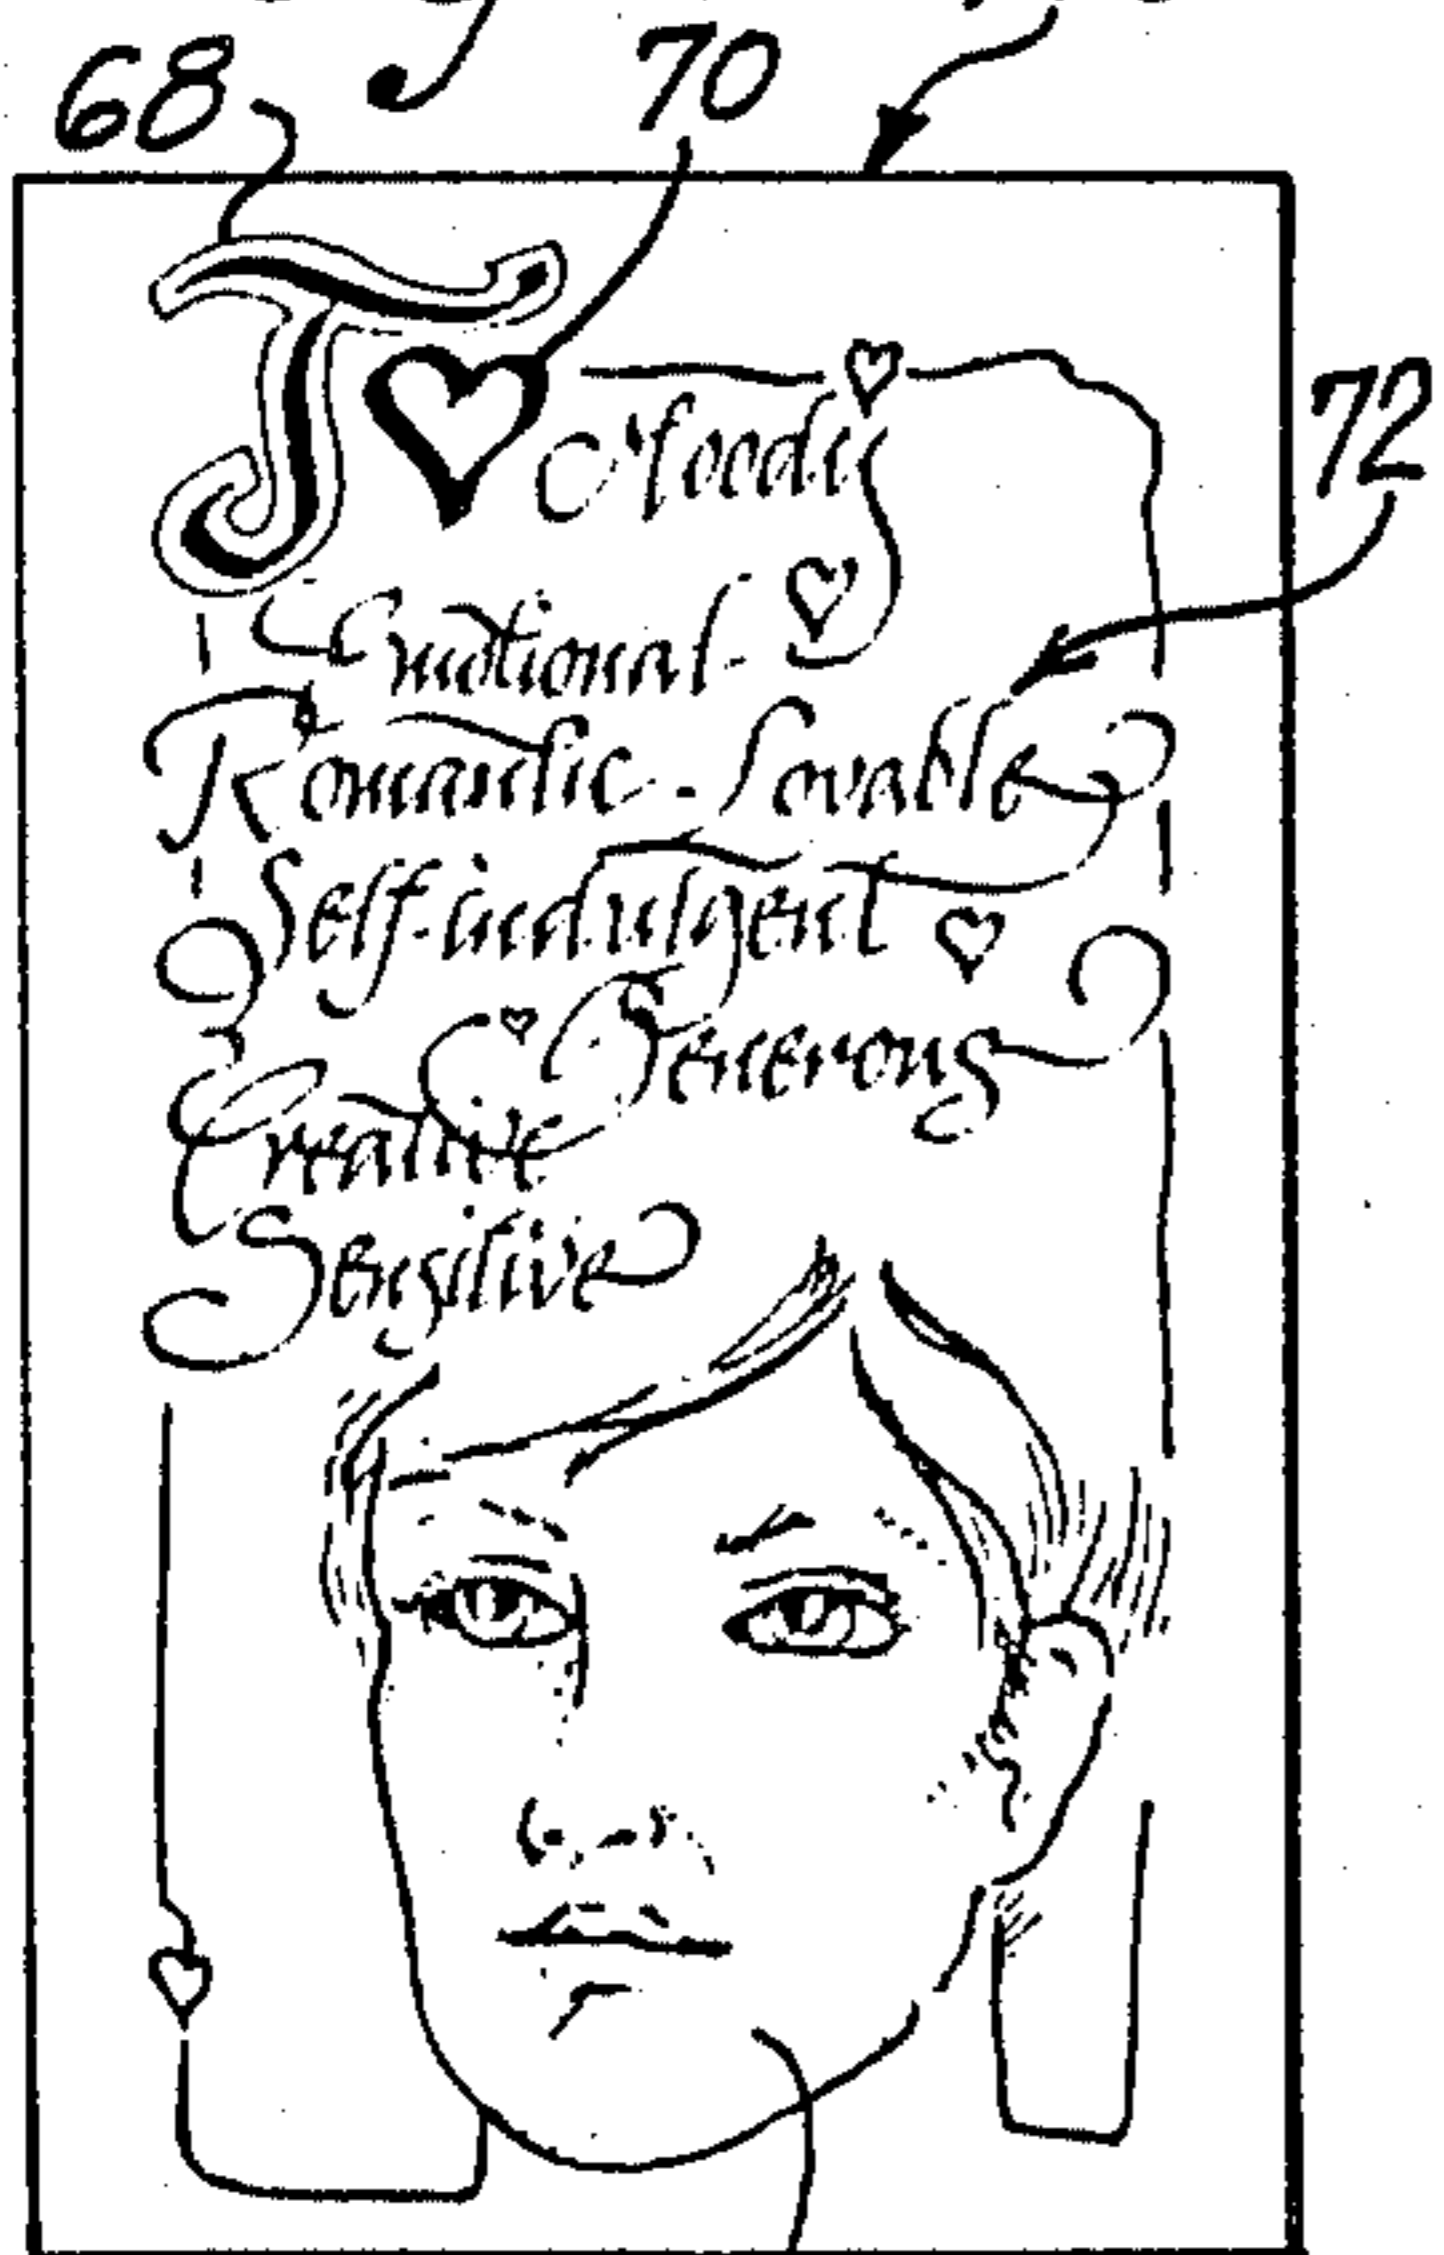 68 70
J
Moody
72
Emotional
Romantic - Lovable
Self-indulgent
Generous
Creative
Sensitive